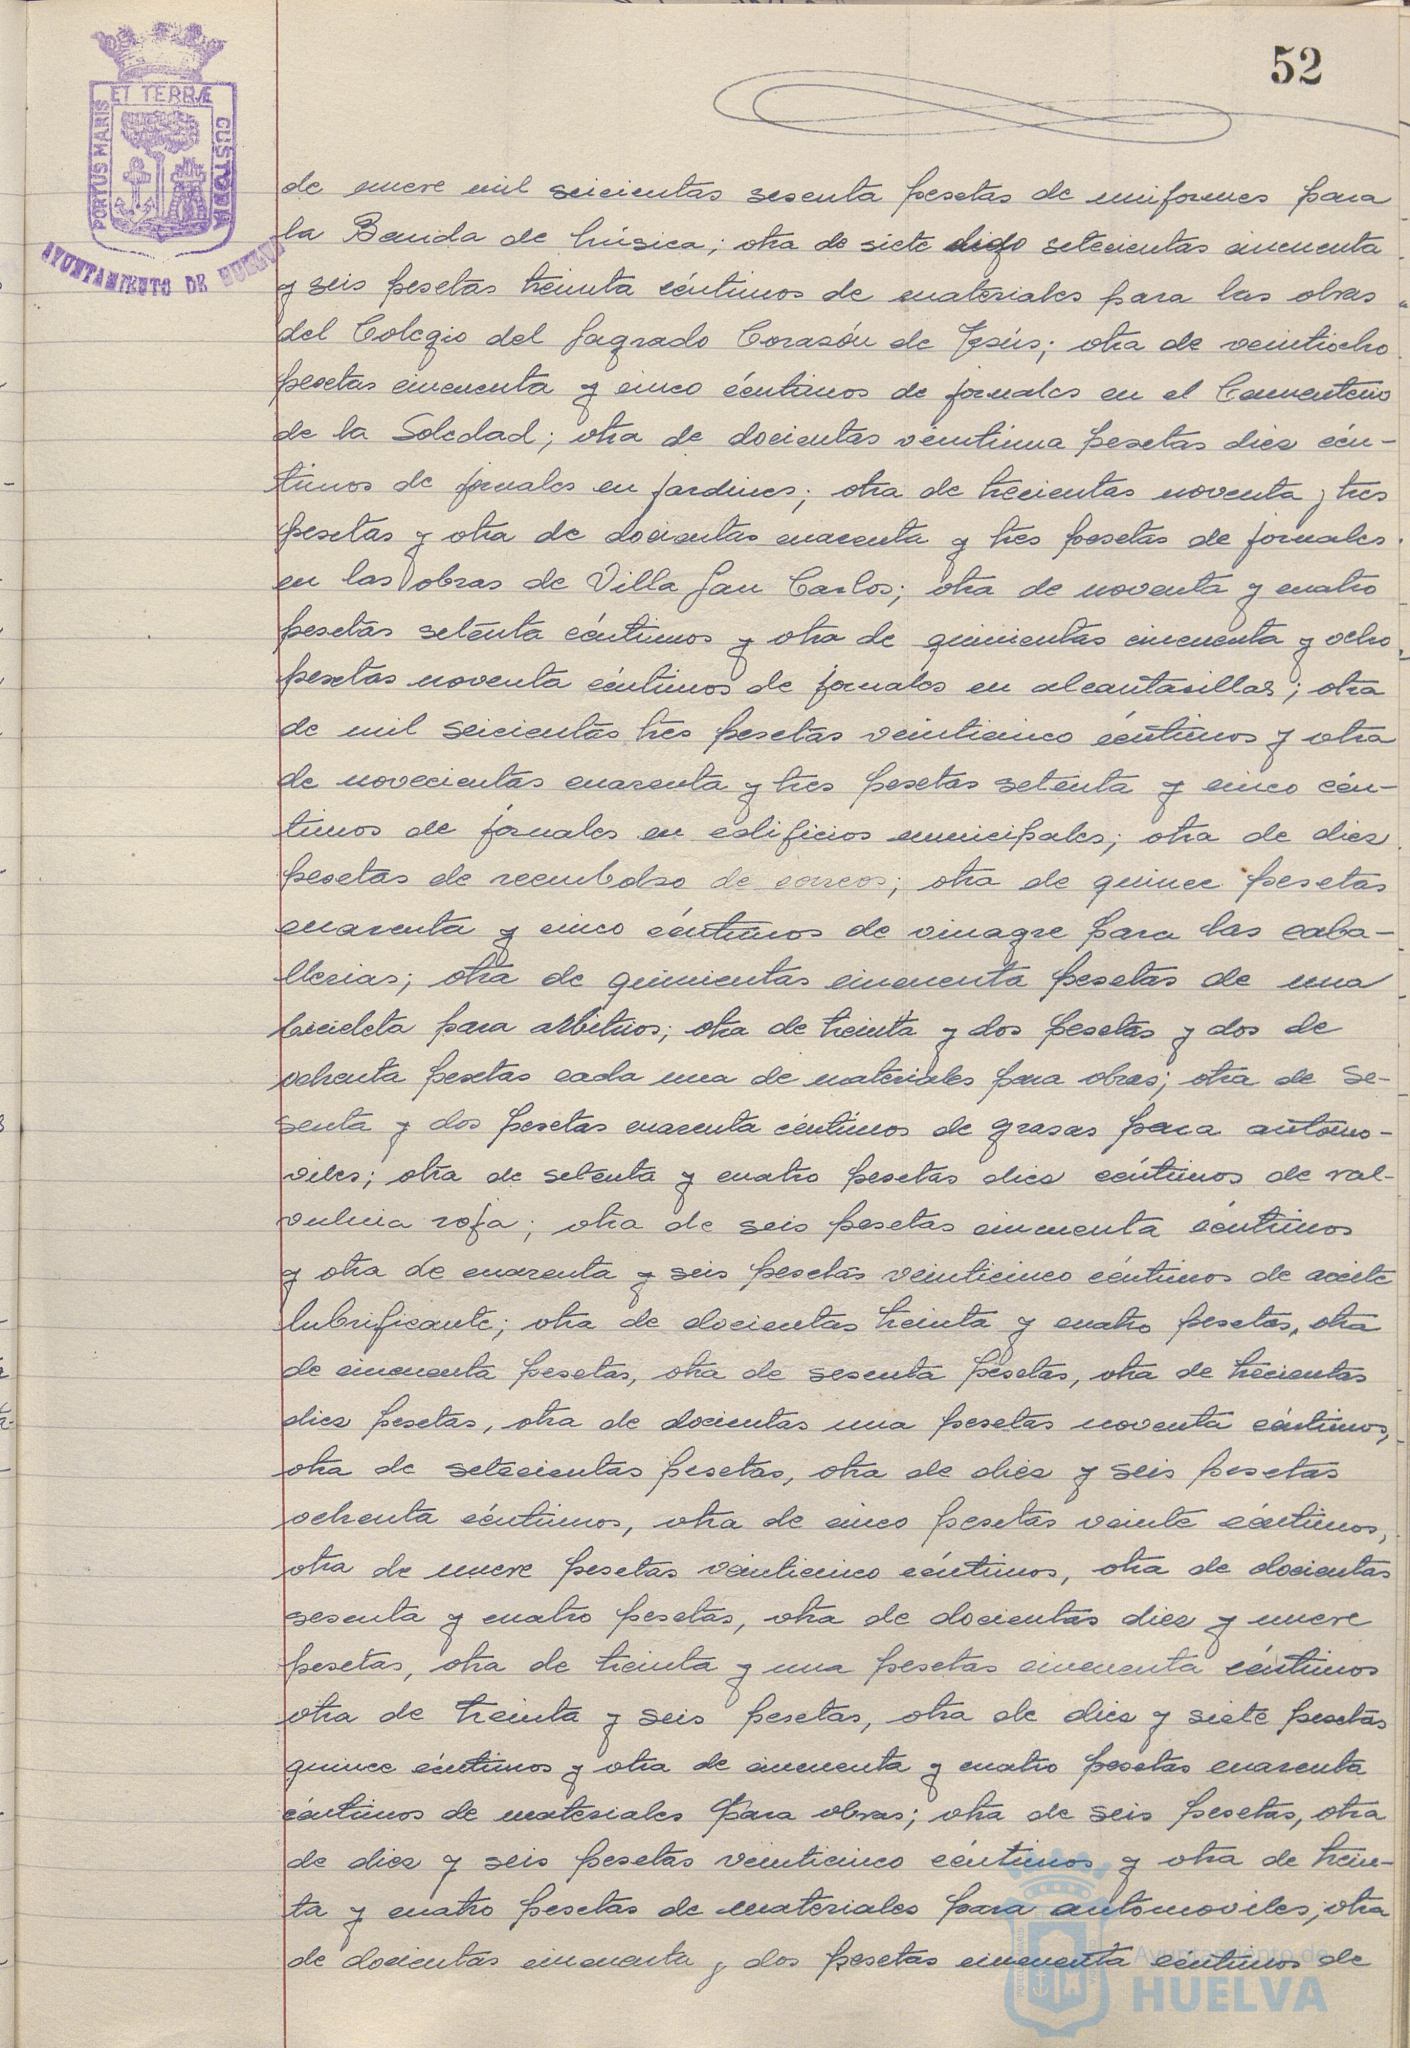 52
ET TERRÆ
PORTUS MARIS
CUSTODIA
AYUNTAMIENTO DE HUELVA
de nueve mil seicientas sesenta pesetas de uniformes para
la Banda de Música; otra de siete digo setecientas cincuenta
y seis pesetas treinta céntimos de materiales para las obras
del Colegio del Sagrado Corazón de Jesús; otra de veintiocho
pesetas cincuenta y cinco céntimos de jornales en el Cementerio
de la Soledad; otra de docientas veintiuna pesetas diez cén-
timos de jornales en jardines; otra de trecientas noventa y tres
pesetas y otra de docientas cuarenta y tres pesetas de jornales
en las obras de Villa San Carlos; otra de noventa y cuatro
pesetas setenta céntimos y otra de quinientas cincuenta y ocho
pesetas noventa céntimos de jornales en alcantarillas; otra
de mil seicientas tres pesetas veinticinco céntimos y otra
de novecientas cuarenta y tres pesetas setenta y cinco cén-
timos de jornales en edificios municipales; otra de diez
pesetas de reembolso de correos; otra de quince pesetas
cuarenta y cinco céntimos de vinagre para las caba-
llerias; otra de quinientas cincuenta pesetas de una
bicicleta para arbitrios; otra de treinta y dos pesetas y dos de
ochenta pesetas cada una de materiales para obras; otra de se-
senta y dos pesetas cuarenta céntimos de grasas para automo-
viles; otra de setenta y cuatro pesetas diez céntimos de val-
vulina roja; otra de seis pesetas cincuenta céntimos
y otra de cuarenta y seis pesetas veinticinco céntimos de aceite
lubrificante; otra de docientas treinta y cuatro pesetas, otra
de cincuenta pesetas, otra de sesenta pesetas, otra de trecientas
diez pesetas, otra de docientas una pesetas noventa céntimos,
otra de setecientas pesetas, otra de diez y seis pesetas
ochenta céntimos, otra de cinco pesetas veinte céntimos,
otra de nueve pesetas veinticinco céntimos, otra de docientas
sesenta y cuatro pesetas, otra de docientas diez y nueve
pesetas, otra de treinta y una pesetas cincuenta céntimos
otra de treinta y seis pesetas, otra de diez y siete pesetas
quince céntimos y otra de cincuenta y cuatro pesetas cuarenta
céntimos de materiales para obras; otra de seis pesetas, otra
de diez y seis pesetas veinticinco céntimos y otra de trein-
ta y cuatro pesetas de materiales para automoviles, otra
de docientas cincuenta y dos pesetas cincuenta centimos de
Ayuntamiento de
HUELVA